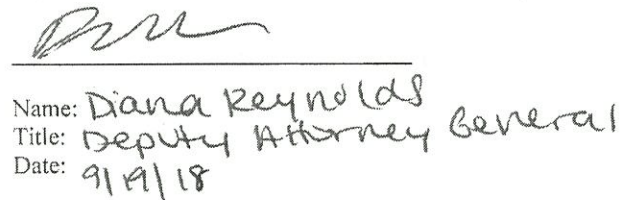 Name: Diana Reynolds
Title: Deputy Attorney General
Date: 9/19/18